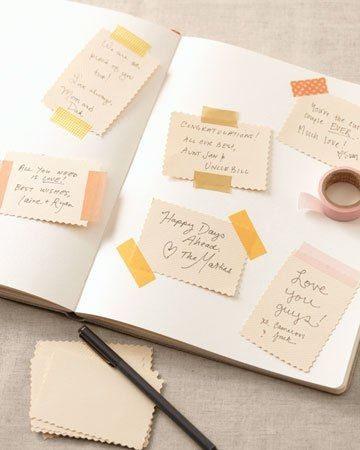 We are so
proud of you
two!
Love always,
Mom and
Dad
ALL YOU NEED
IS LOVE!
BEST WISHES,
Jaine + Ryan
CONGRATULATIONS!
ALL OUR BEST,
AUNT JAN &
UNCLE BILL
Happy Days
Ahead.
The Martins
You're the cutest
couple EVER
Much love!
Love
you
guys!
xo, Cameron
& Jack